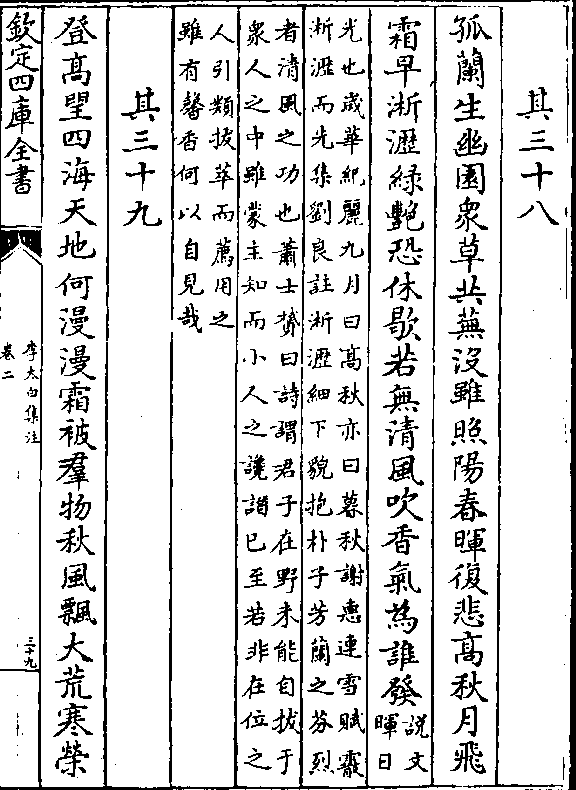 其三十八
孤蘭生幽園衆草共蕪沒雖照陽春暉復悲高秋月飛
霜早淅瀝綠艷恐休歇若無清風吹香氣為誰發説文
暉日
光也歳華紀麗九月曰高秋亦曰暮秋謝惠連雪賦霰
淅瀝而先集劉良註淅瀝細下貌抱朴子芳蘭之芬烈
者清風之功也蕭士贇曰詩謂君子在野未能自拔于
衆人之中雖蒙主知而小人之讒譖已至若非在位之
人引類拔萃而薦用之
雖有馨香何以自見哉
其三十九
登高望四海天地何漫漫霜被羣物秋風飄大荒寒榮
欽定四庫全書
李太白集注
卷二
三十九